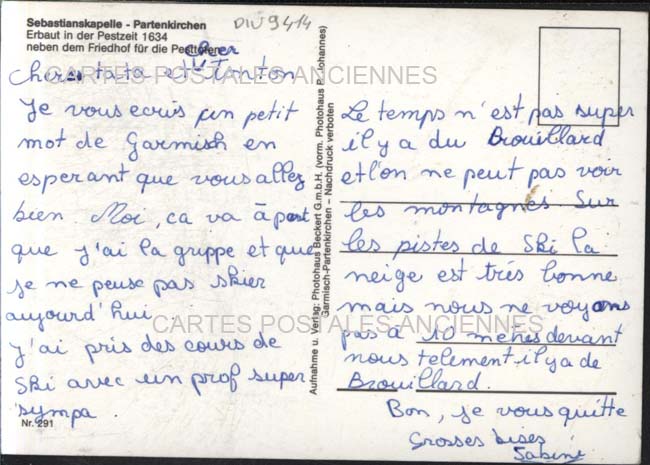 Sebastianskapelle - Partenkirchen
Erbaut in der Pestzeit 1634
neben dem Friedhof für die Pesttoten
DIV 9414
cher
Chere tata et Tonton
Je vous ecris un petit
mot de Garmish en
esperant que vous allez
bien. Moi, ca va à part
que j'ai la grippe et que
je ne peuse pas skier
aujourd'hui.
J'ai pris des cours de
Ski avec un prof super
sympa.
Nr. 291
Aufnahme u. Verlag: Photohaus Beckert G.m.b.H. (vorm. Photohaus P. Johannes)
Garmisch-Partenkirchen – Nachdruck verboten
Le temps n'est pas super
il y a du Brouillard
et l'on ne peut pas voir
les montagnes. Sur
les pistes de Ski la
neige est très bonne
mais nous ne voyons
pas à 10 mètres devant
nous telement il y a de
Brouillard.
Bon, je vous quitte
Grosses bises
Sabine
CARTES POSTALES ANCIENNES
CARTES POSTALES ANCIENNES